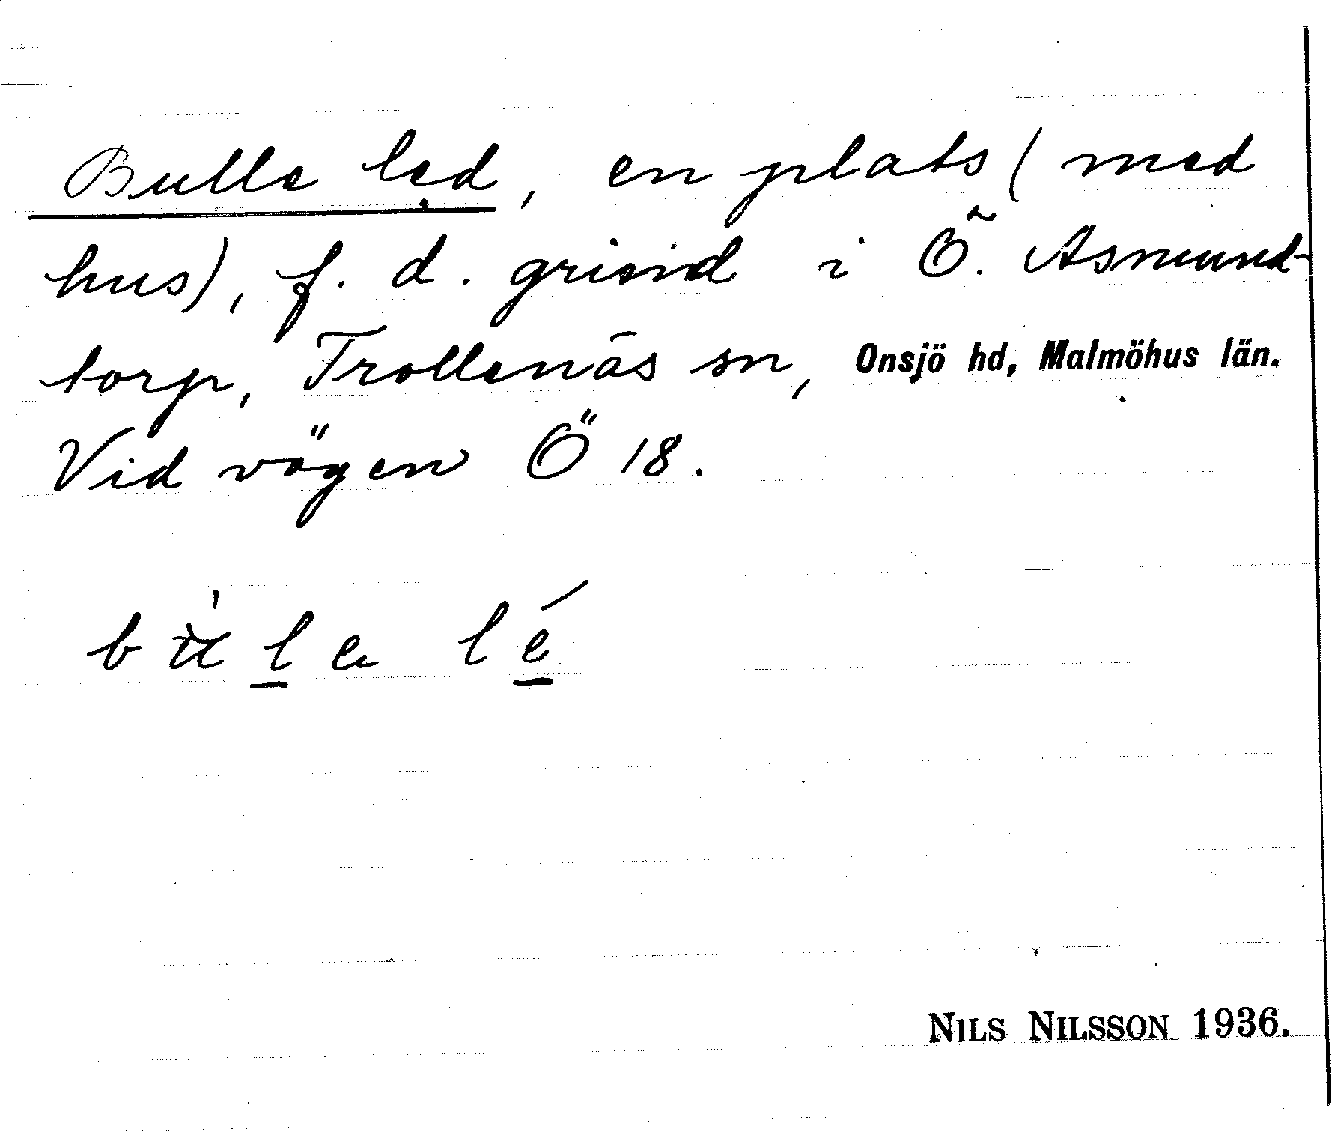 Bulle led, en plats (med
hus), f. d. grind i Ö. Asmund-
torp, Trollenäs sn, Onsjö hd, Malmöhus län.
Vid vägen Ö 18.
lé
NILS NILSSON 1936.